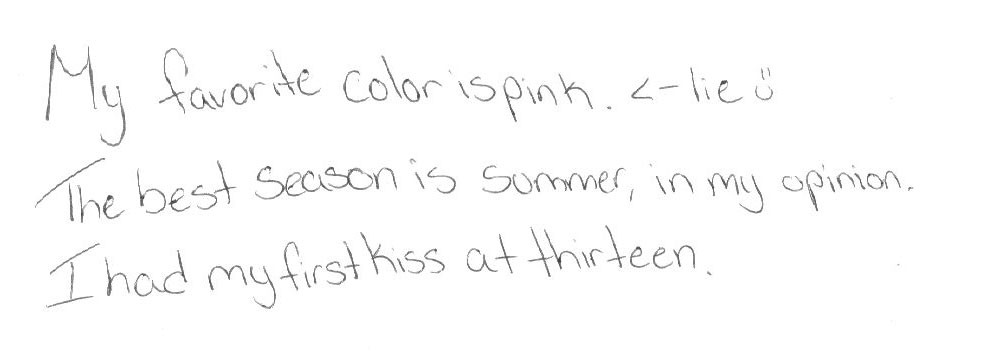 My favorite color is pink. <- lie ü
The best season is summer, in my opinion.
I had my first kiss at thirteen.